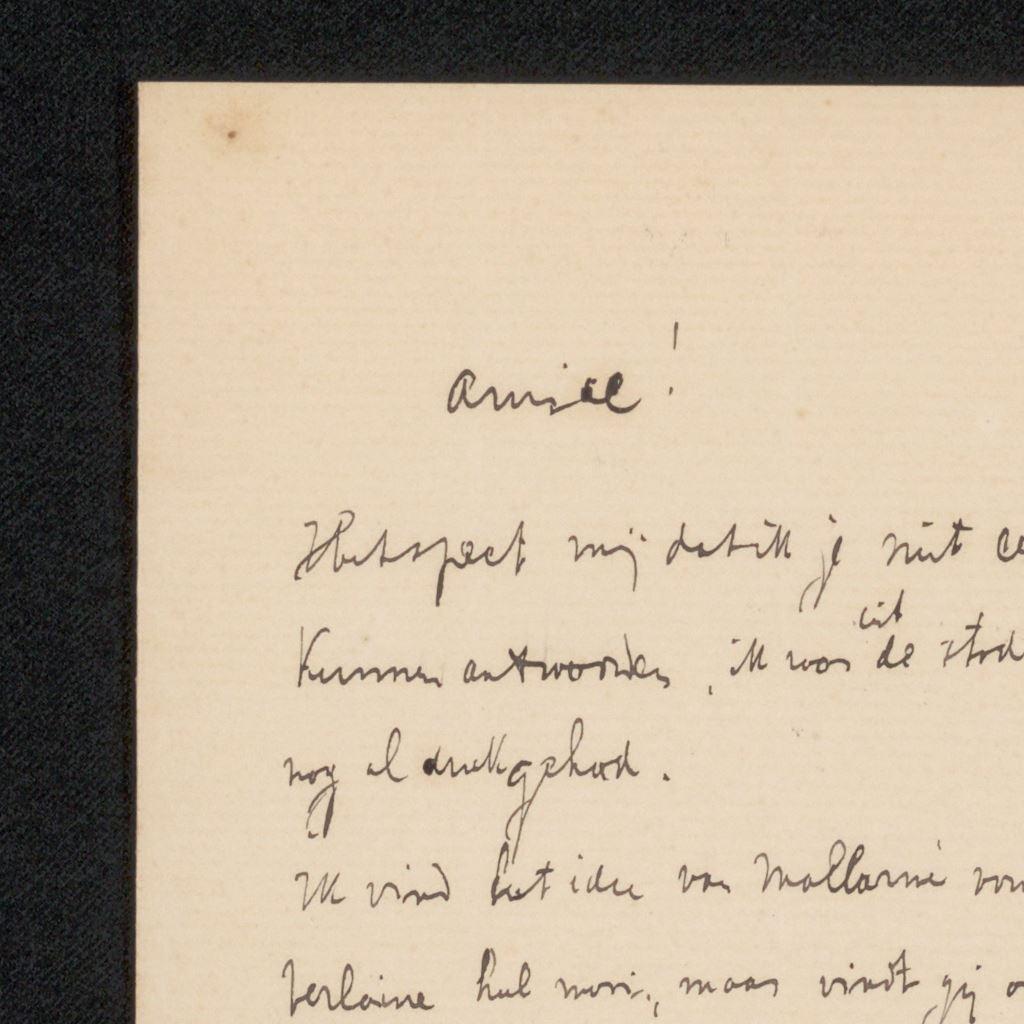 Amice!
Het speet mij dat ik je niet ee
uit
kunnen antwoorden, ik was de stad
nog al druk gehad.
Ik vind het idee van Mallarmé voor
Verlaine heel mooi, maar vindt gij o